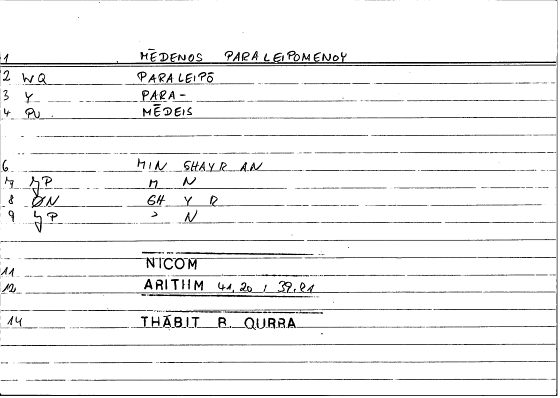 1 MĒDENOS PARALEIPOMENOY
2 WQ PARALEIPŌ
3 Y PARA-
4 PU MĒDEIS
6 MIN GHAYR AN
7 JP M N
8 ØN GH Y R
9 JP ʾ N
NICOM
11
12 ARITHM 41,20 ; 39,21
14 THĀBIT B. QURRA